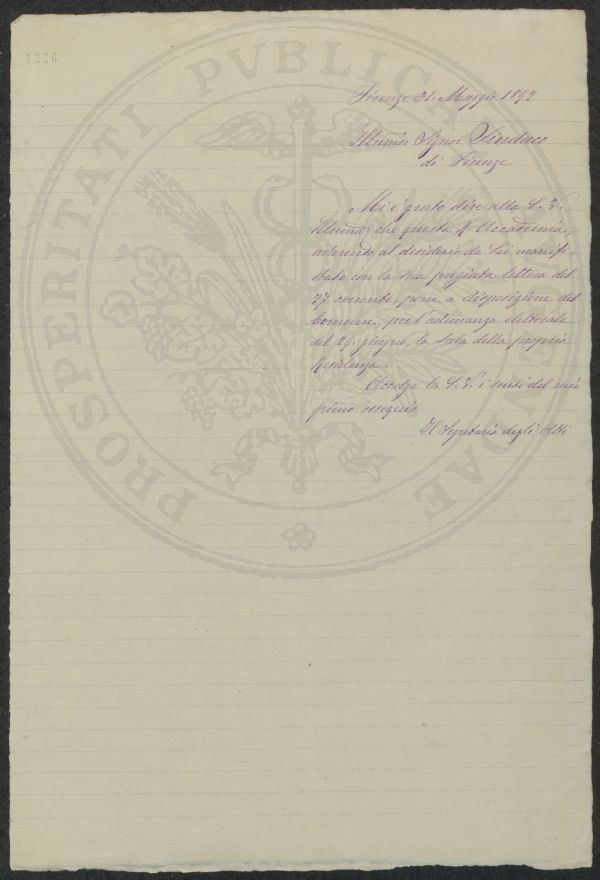 1226
PROSPERITATI PVBLICAE AVGENDAE
Firenze 31. Maggio 1892
Illmo Signor Sindaco
di Firenze
Mi è grato dire alla S. V.
Illma che questa R. Accademia,
aderendo al desiderio da Lei manife-
stato con la sua pregiata lettera del
27 corrente, pone a disposizione del
Comune, per l'adunanza elettorale
del giugno, la Sala della propria
Residenza.
Accolga la S. V. i sensi del mio
pieno ossequio
Il Segretario degli Atti